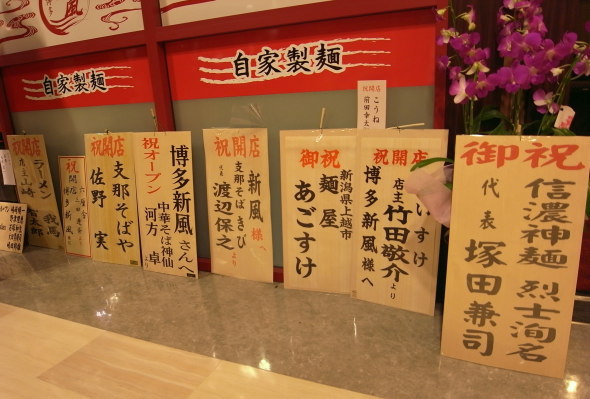 自家製麺
自家製麺
祝開店
ラーメン
我馬
祝
博多新風
祝開店
支那そばや
佐野 実
祝オープン
博多新風さんへ
中華そば神仙
河方 卓
祝開店
新風様へ
支那そばきび
代表
渡辺保之
より
御祝
新潟県上越市
麺屋
あごすけ
祝開店
こうね
前田幸太
祝開店
いすけ
店主
竹田敬介
より
博多新風様へ
御祝
信濃神麺 烈士洵名
代表
塚田兼司